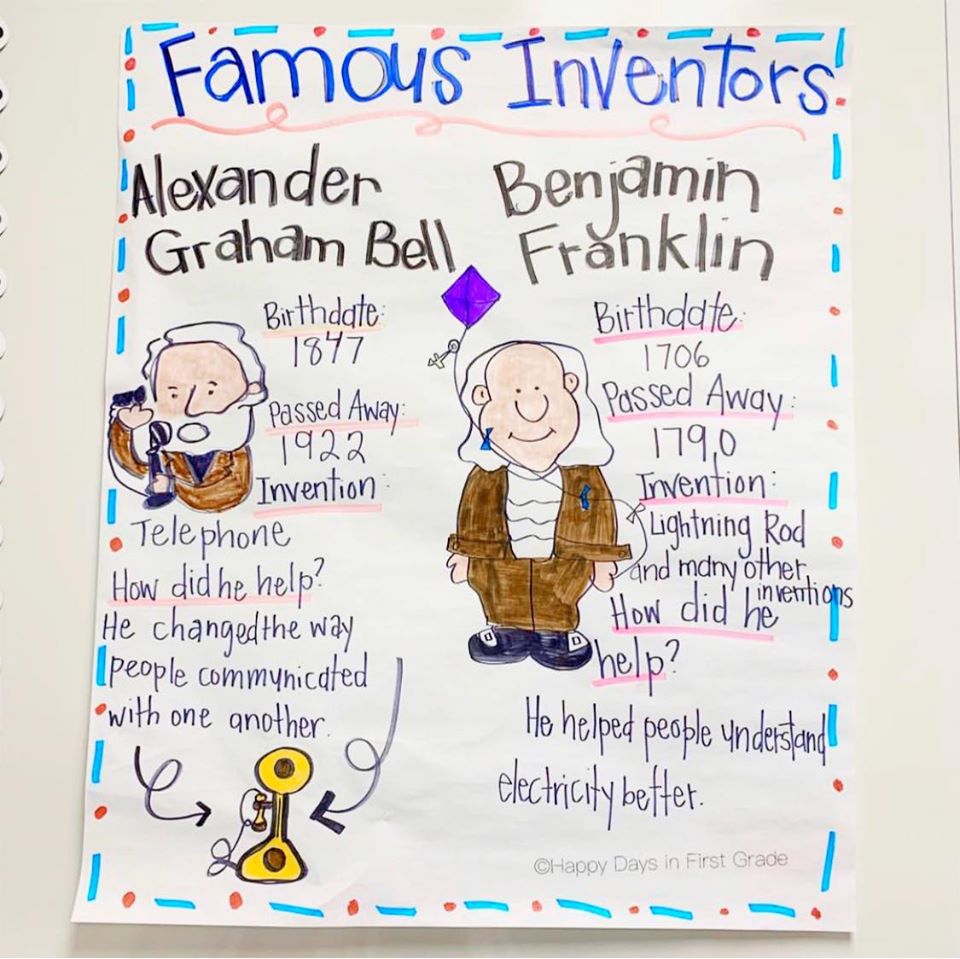 Famous Inventors
Alexander
Graham Bell
Birthdate:
1847
Passed Away:
1922
Invention:
Telephone
How did he help?
He changed the way
people communicated
with one another.
Benjamin
Franklin
Birthdate:
1706
Passed Away:
1790
Invention:
Lightning Rod
and many other
inventions
How did he
help?
He helped people understand
electricity better.
©Happy Days in First Grade